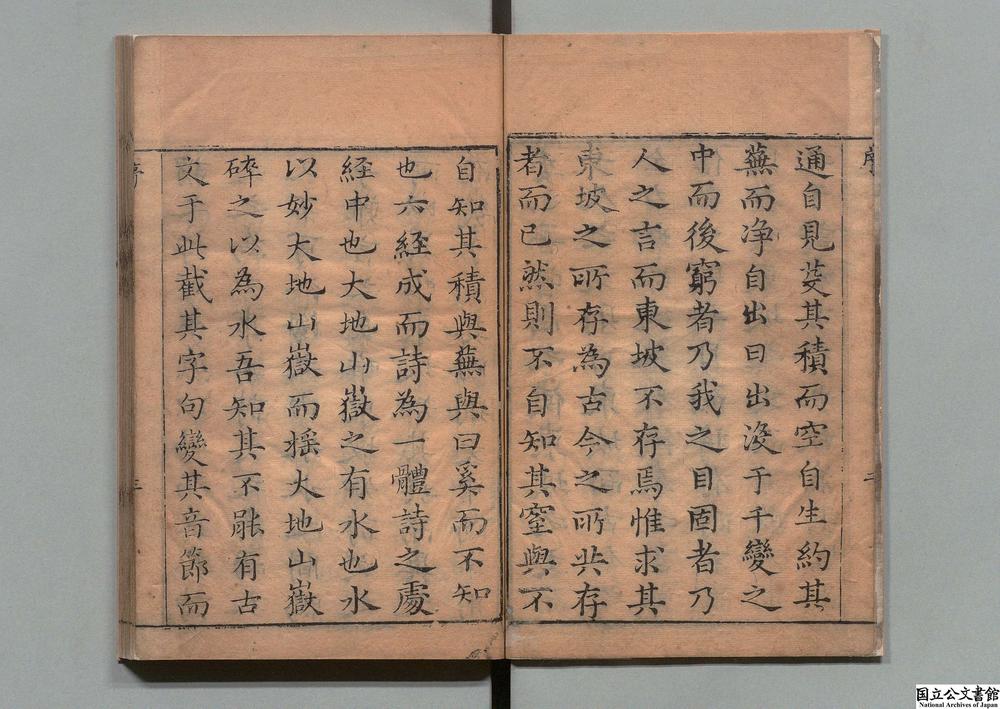 通自見芟其積而空自生約其
蕪而净自出曰出沒于千變之
中而後窮者乃我之目固者乃
人之言而東坡不存焉惟求其
東坡之所存為古今之所共存
者而已然則不自知其窒與不
自知其積與蕪與曰奚而不知
也六經成而詩為一體詩之處
経中也大地山嶽之有水也水
以妙大地山嶽而揺大地山嶽
碎之以為水吾知其不能有古
文于此截其字句變其音節而
序
二
序
三
国立公文書館
National Archives of Japan